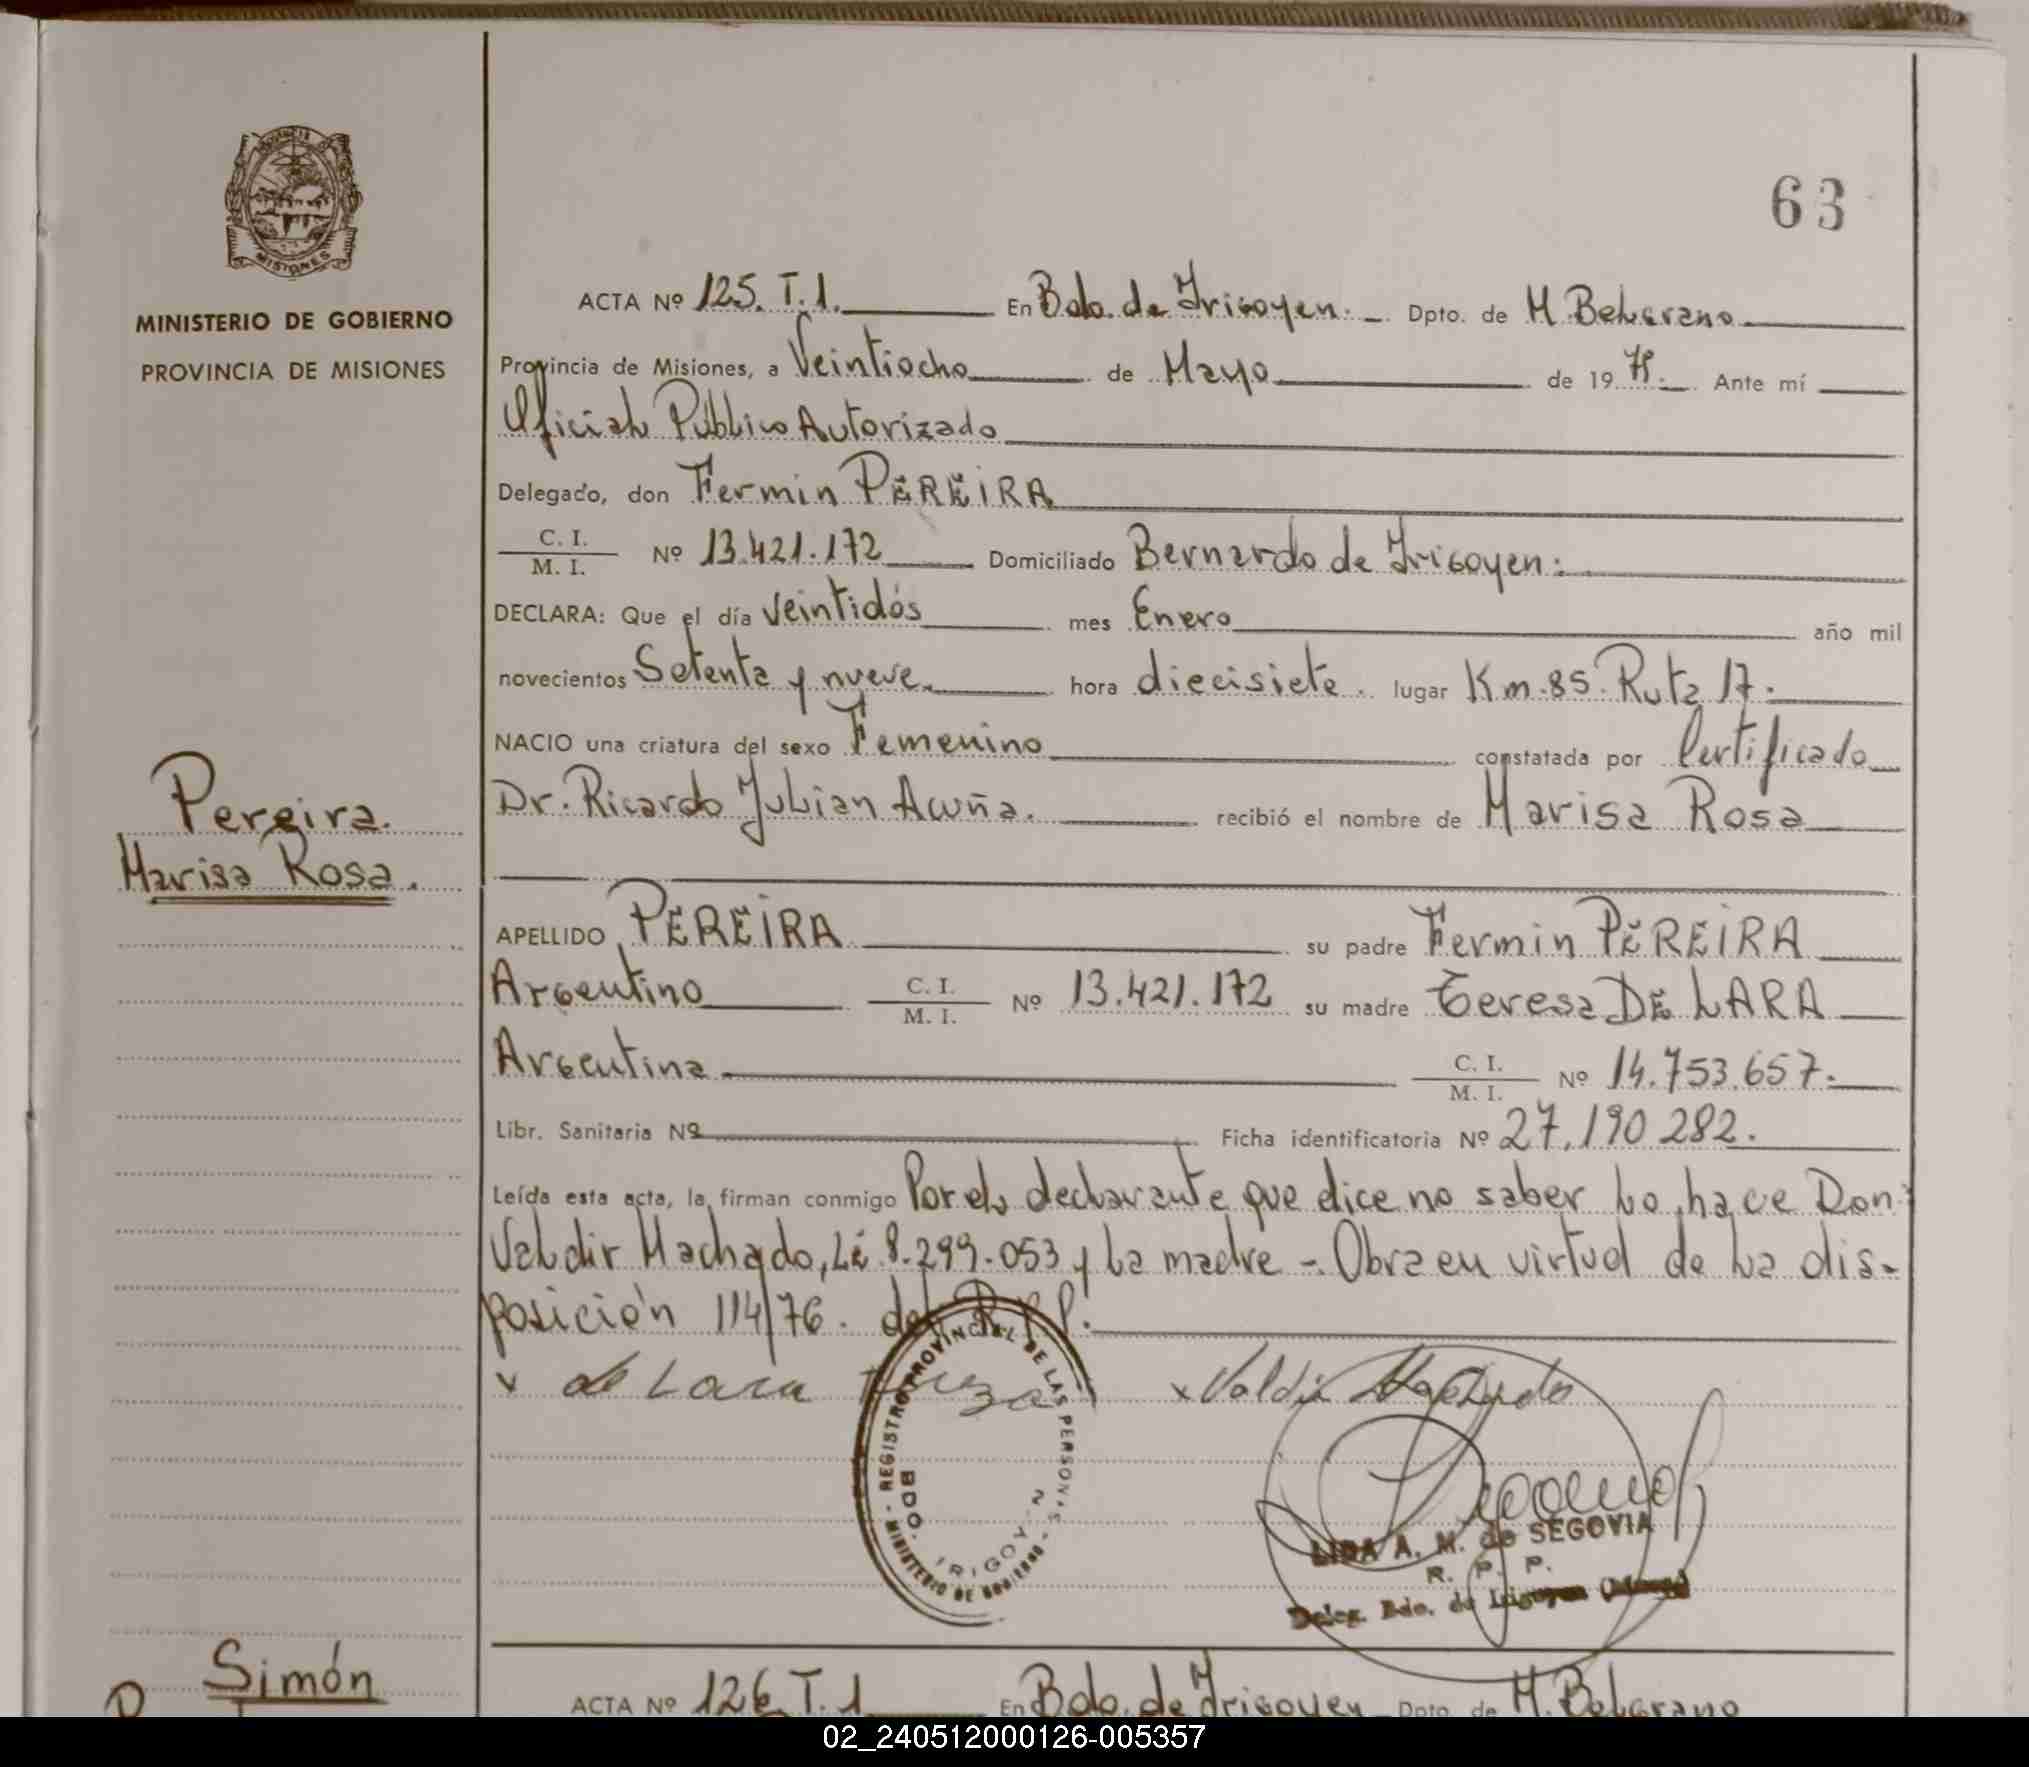 63
PROVINCIA
MISIONES
MINISTERIO DE GOBIERNO
PROVINCIA DE MISIONES
ACTA Nº 125. T.1. En Bdo. de Irigoyen. Dpto. de M. Belgrano
Provincia de Misiones, a Veintiocho de Mayo de 19 Ante mí
Oficial Público Autorizado
Delegado, don Fermin PEREIRA
C. I.
M. I. Nº 13.421.172 Domiciliado Bernardo de Irigoyen:
DECLARA: Que el día veintidós mes Enero año mil
novecientos Setenta y nueve. hora diecisiete. lugar Km. 85. Ruta 17.
NACIO una criatura del sexo Femenino constatada por Certificado
Dr. Ricardo Julian Acuña. recibió el nombre de Marisa Rosa
Pereira.
Marisa Rosa.
APELLIDO PEREIRA su padre Fermin PEREIRA
Argentino C. I. M. I. Nº 13.421.172 su madre Teresa DE LARA
Argentina C. I. M. I. Nº 14.753.657.
Libr. Sanitaria Nº Ficha identificatoria Nº 27.190.282.
Leída esta acta, la firman conmigo Por el declarante que dice no saber lo hace Don:
Valdir Machado, LE 8.299.053 y la madre -. Obra en virtud de la dis-
posición 114/76. del R.P.P.
x de Lara x Valdir Machado
REGISTRO PROVINCIAL DE LAS PERSONAS - MINISTERIO DE GOBIERNO -
BDO. IRIGOY
LIDA A. M. de SEGOVIA
R. P. P.
Deleg. Bdo. de Irigoyen
Simón
ACTA Nº 126 T.1 En Bdo. de Irigoyen Dpto. de M. Belgrano
02_240512000126-005357